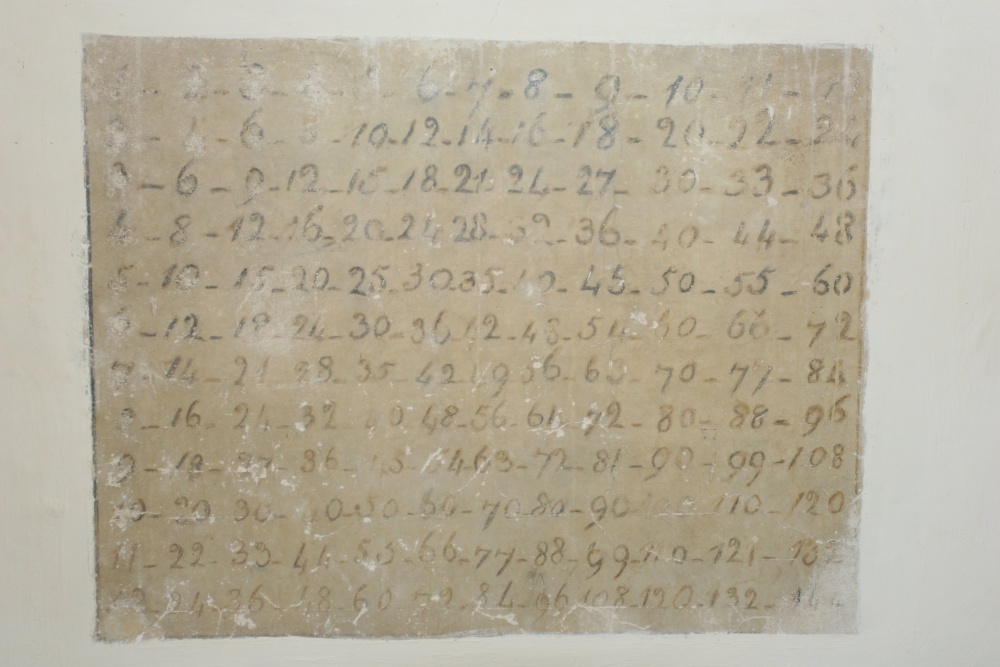 2 - 3 - 6 - 7 - 8 - 9 - 10 - 11 - 1
4 - 6 - 8 - 10 - 12 - 14 - 16 - 18 - 20 - 22 - 24
3 - 6 - 9 - 12 - 15 - 18 - 21 - 24 - 27 - 30 - 33 - 36
4 - 8 - 12 - 16 - 20 - 24 - 28 - 32 - 36 - 40 - 44 - 48
5 - 10 - 15 - 20 - 25 - 30 - 35 - 40 - 45 - 50 - 55 - 60
6 - 12 - 18 - 24 - 30 - 36 - 42 - 48 - 54 - 60 - 66 - 72
7 - 14 - 21 - 28 - 35 - 42 - 49 - 56 - 63 - 70 - 77 - 84
8 - 16 - 24 - 32 - 40 - 48 - 56 - 64 - 72 - 80 - 88 - 96
9 - 18 - 27 - 36 - 45 - 54 - 63 - 72 - 81 - 90 - 99 - 108
10 - 20 - 30 - 40 - 50 - 60 - 70 - 80 - 90 - 110 - 120
11 - 22 - 33 - 44 - 55 - 66 - 77 - 88 - 99 - 110 - 121 - 132
12 - 24 - 36 - 48 - 60 - 72 - 84 - 96 - 108 - 120 - 132 - 144